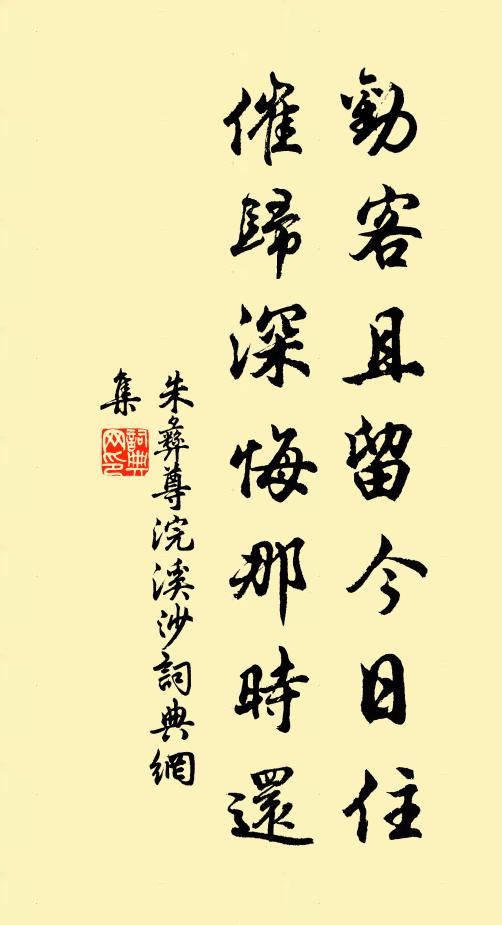 勸客且留今日住
催歸深悔那時還
朱彝尊浣溪沙詞典網
集
詞典网印